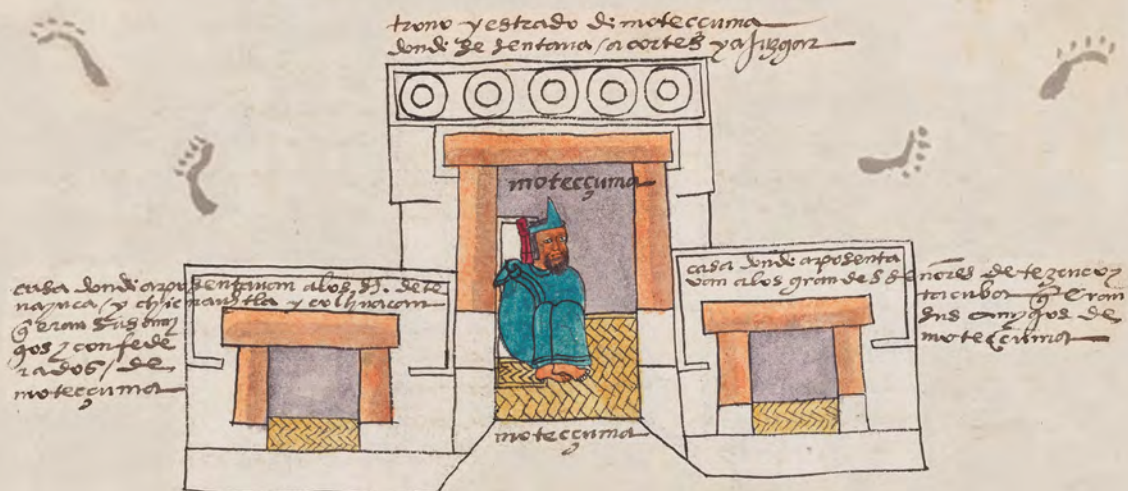 trono y estrado de moteccuma
donde se sentava a cortes y a juzgar
moteccuma
casa donde aposentavan a los sS. de te
nayuca, y chicnauhtla y colhuacan
q̃ eran sus ami
gos y confede
rados, de
moteccuma
casa donde aposenta
van a los grandes señores de tezcuco y
tacuba q̃ eran
sus amygos de
moteccuma
moteccuma